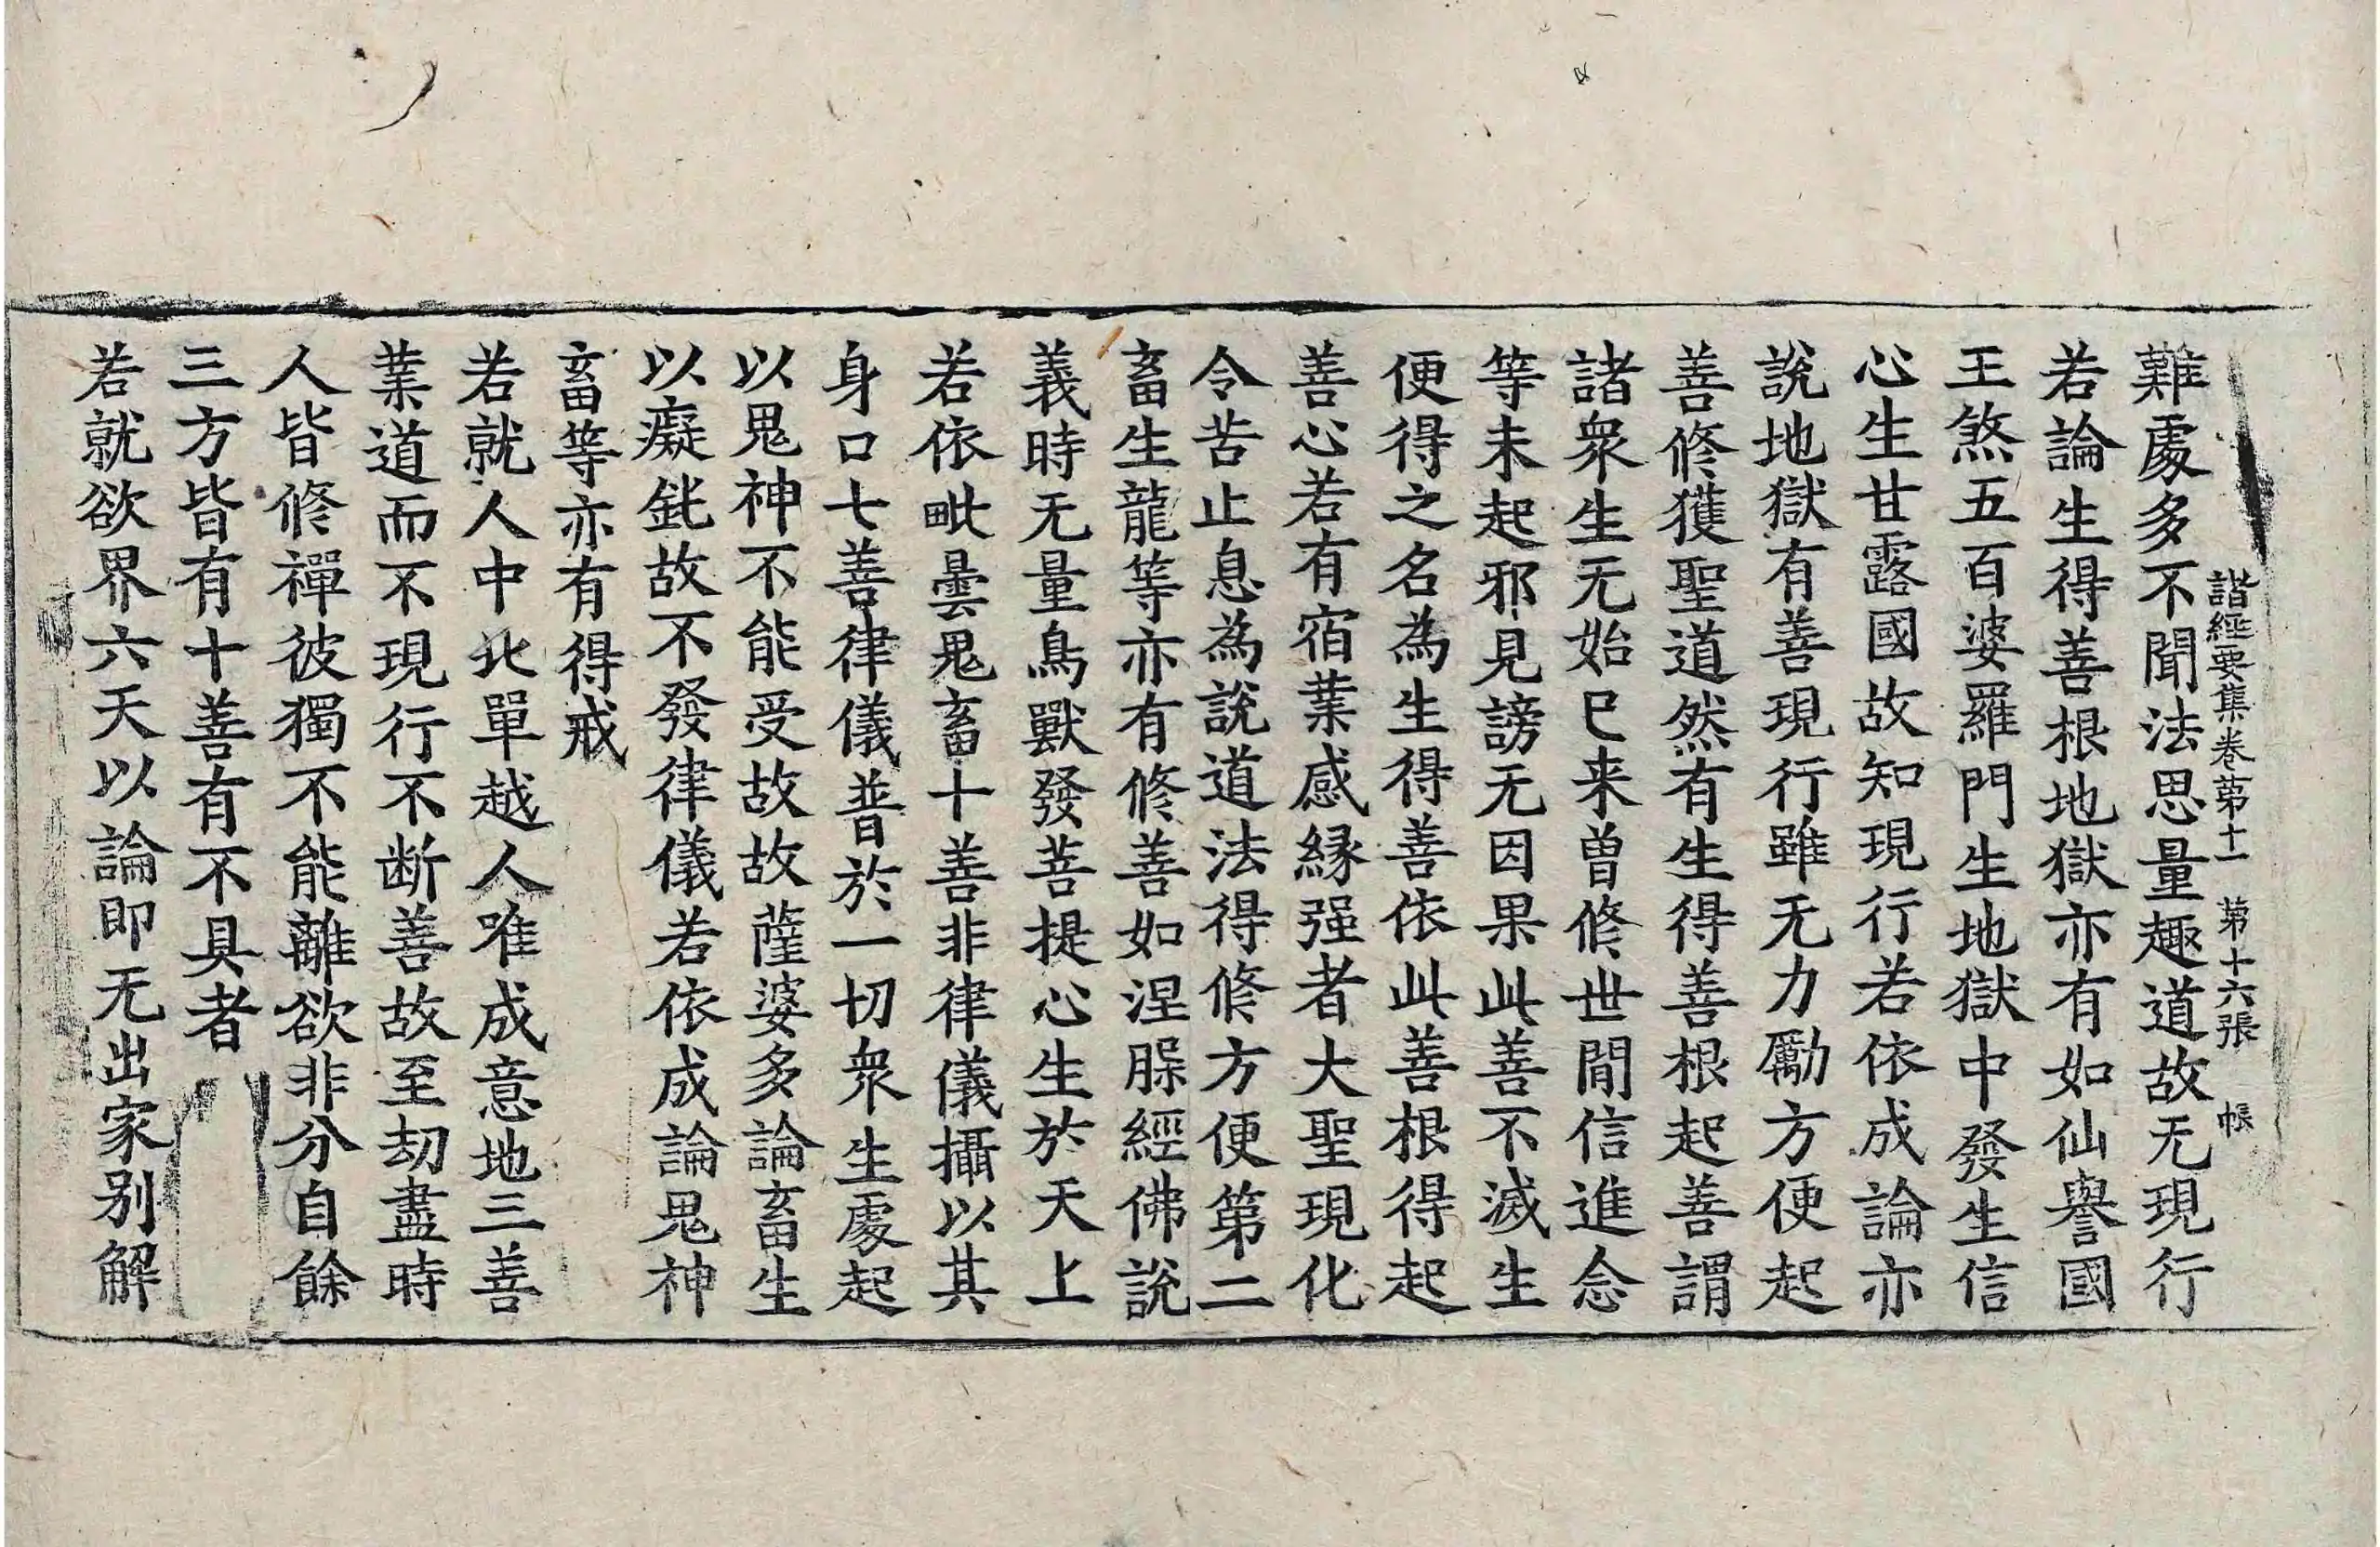 諸經要集卷第十一　第十六張　帳
難處多不聞法思量趣道故无現行
若論生得善根地獄亦有如仙譽國
王煞五百婆羅門生地獄中發生信
心生甘露國故知現行若依成論亦
說地獄有善現行雖无力勵方便起
善修獲聖道然有生得善根起善謂
諸衆生无始已来曾修世間信進念
等未起邪見謗无因果此善不滅生
便得之名為生得善依此善根得起
善心若有宿業感緣强者大聖現化
令苦止息為說道法得修方便第二
畜生龍等亦有修善如涅槃經佛說
義時无量鳥獸發菩提心生於天上
若依毗曇鬼畜十善非律儀攝以其
身口七善律儀普於一切衆生處起
以鬼神不能受故故薩婆多論畜生
以癡鈍故不發律儀若依成論鬼神
畜等亦有得戒
若就人中北單越人唯成意地三善
業道而不現行不断善故至劫盡時
人皆修禪彼獨不能離欲非分自餘
三方皆有十善有不具者
若就欲界六天以論即无出家別解